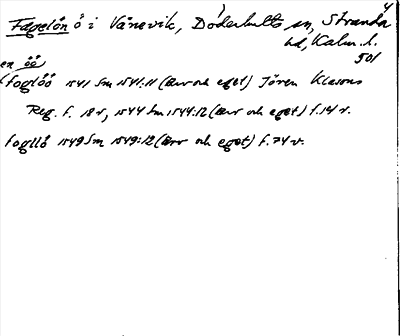 4
Fågelön ö i Vånevik, Döderhults sn, Stranda
hd, Kalm. l.
501
en öö
(foglöö 1541 Sm 1541:11 (Arv och eget) Jören Klasons
Reg. f. 18 v, 1544 Sm 1544:12 (Arv och eget) f. 14 v.
foglö 1549 Sm 1549:12 (Arv och eget) f. 74 v.